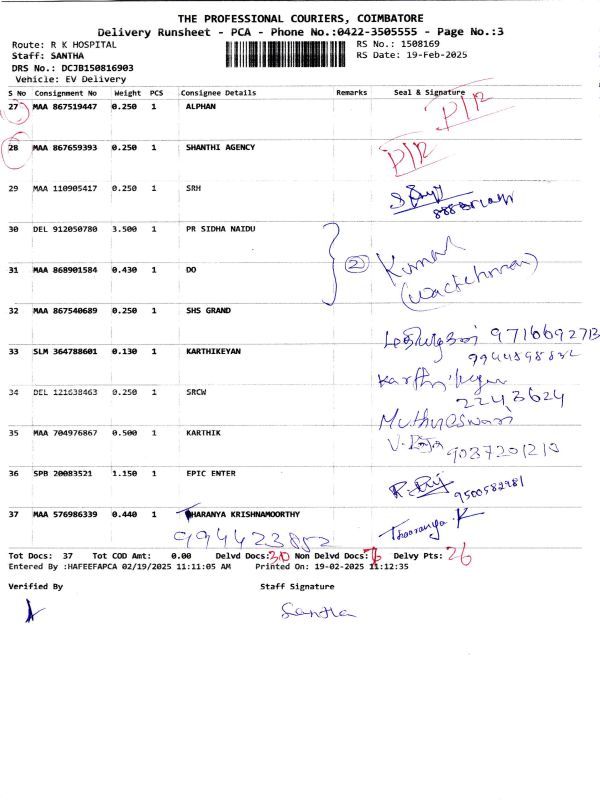 THE PROFESSIONAL COURIERS, COIMBATORE
Delivery Runsheet - PCA - Phone No.:0422-3505555 - Page No.:3
Route: R K HOSPITAL RS No.: 1508169
Staff: SANTHA RS Date: 19-Feb-2025
DRS No.: DCJB150816903
Vehicle: EV Delivery
S No Consignment No Weight PCS Consignee Details Remarks Seal & Signature
27 MAA 867519447 0.250 1 ALPHAN
28 MAA 867659393 0.250 1 SHANTHI AGENCY
29 MAA 110905417 0.250 1 SRH
30 DEL 912050780 3.500 1 PR SIDHA NAIDU
② Kumar
(watchman)
31 MAA 868901584 0.430 1 DO
32 MAA 867540689 0.250 1 SHS GRAND
33 SLM 364788601 0.130 1 KARTHIKEYAN
34 DEL 121638463 0.250 1 SRCW
2243624
35 MAA 704976867 0.500 1 KARTHIK
36 SPB 20083521 1.150 1 EPIC ENTER
37 MAA 576986339 0.440 1 THARANYA KRISHNAMOORTHY Thaaranya.K
994423852
Tot Docs: 37 Tot COD Amt: 0.00 Delvd Docs: 30 Non Delvd Docs: 7 Delvy Pts: 26
Entered By :HAFEEFAPCA 02/19/2025 11:11:05 AM Printed On: 19-02-2025 11:12:35
Verified By Staff Signature
Santha